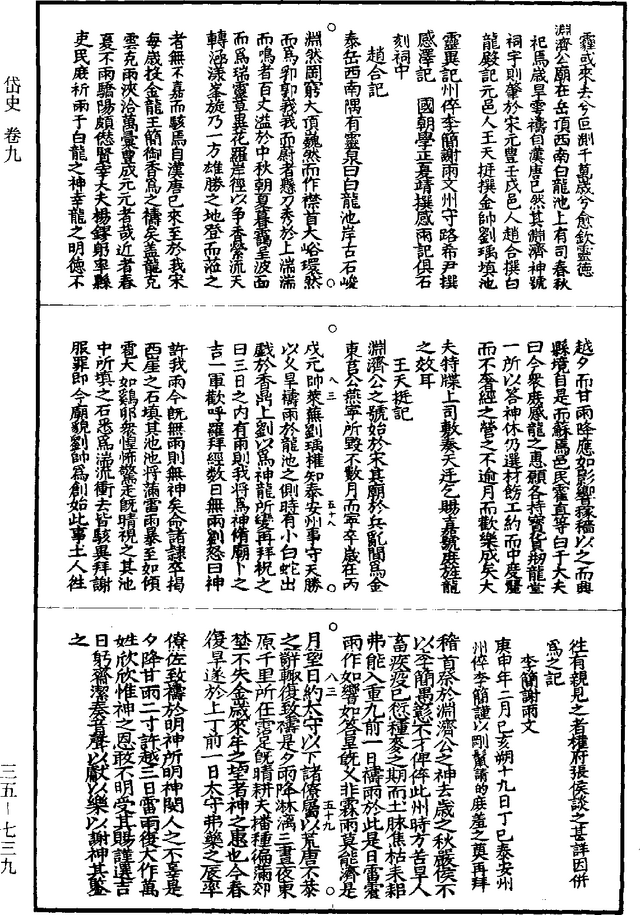 霾或來去兮叵測千萬歲兮愈欽靈德
淵濟公廟在岳頂西南白龍池上有司春秋
祀焉歲旱雩禱自漢唐已然其淵濟神號
祠宇則肇於宋元豐壬戌邑人趙合撰白
龍殿記元邑人王天挺撰金帥劉瑀填池
靈異記州倅李簡謝雨文州守路希尹撰
感澤記 國朝學正夏靖撰感雨記俱石
刻祠中
趙合記
泰岳西南隅有靈泉曰白龍池岸古石峻
淵然罔窮大頂巍然而作襟首大峪環然
而爲郛郭我我而蔚者懸刀秀於上湍湍
而鳴者百丈溢於中秋朝夏暮靄呈波面
而爲瑞靈草異花羅岸徑以争香縈流天
轉涵漾峯旋乃一方雄勝之地登而涖之
者無不嘉而駭焉自漢唐已來至於我宋
每歲投金龍玉簡御香爲之禱矣盖龍克
雲克雨浹洽萬彙豐成元元者哉近者春
夏不雨驕陽頗愆賢宰大夫楊鐸躬率縣
吏民庶祈雨于白龍之神幸龍之明德不
越夕而甘雨降應如影響稼穡以之而興
縣境自是而蘇焉邑民霍直等曰千大夫
曰今衆庶感龍之惠願各持寶貨剏龍堂
一所以荅神休仍選材飭工約而中度麗
而不奢經之營之不逾月而歡樂成矣大
夫特牒上司敷奏天迓乞賜真號庶旌龍
之效耳
王天挺記
淵濟公之號始於宋其廟於兵亂間爲金
東莒公燕寧所毀不數月而寧卒歲在丙
八三 五十八
戊元帥萊蕪劉瑀權知泰安州事守天勝
以久旱禱雨於龍池之側時有小白蛇出
戲於香鼎上劉以爲神龍所變再拜祝之
曰三日之内有雨則我將爲神脩廟卜之
吉一軍歡呼羅拜經數日無雨劉怒曰神
許我雨今旣無雨則無神矣命諸隷卒揭
西崖之石填其池池將滿雷雨暴至如傾
雹大如鷄卵衆惶怖驚走旣晴視之其池
中所填之石悉爲湍流衝去皆駭異拜謝
服罪即今廟貌劉帥爲創始此事土人徃
徃有親見之者權府張侯談之甚詳因併
爲之記
李簡謝雨文
庚申年二月己亥朔十九日丁巳泰安州
州倅李簡謹以剛鬣清酌庶羞之奠再拜
稽首祭於淵濟公之神去歲之秋嚴侯不
以李簡愚彰不才俾倅此州時方苦旱人
畜疾疫已愆種麥之期而土脉焦枯耒耜
弗能入重九前一日禱雨於此是日雷震
雨作如響如答旱旣乂非霖雨莫能濟是
八三 五十九
月望日約太守以下諸僚屬以荒唐不恭
之辭輙復致禱是夕雨降淋漓三晝夜東
原千里所在霑足旣晴耕夫播種徧滿郊
埜不失金歲來年之望者神之惠也今春
復旱遂於上丁前一日太守弗藥之辰率
僚佐致禱於明神所明神閔人之不辜是
夕降甘雨二寸許越三日雷雨復大作萬
姓欣欣惟神之恩敢不明受其賜謹選吉
日躬齋潔奏音聲以獻以樂以謝神其鑒
之
岱史 卷九
三五－七三九